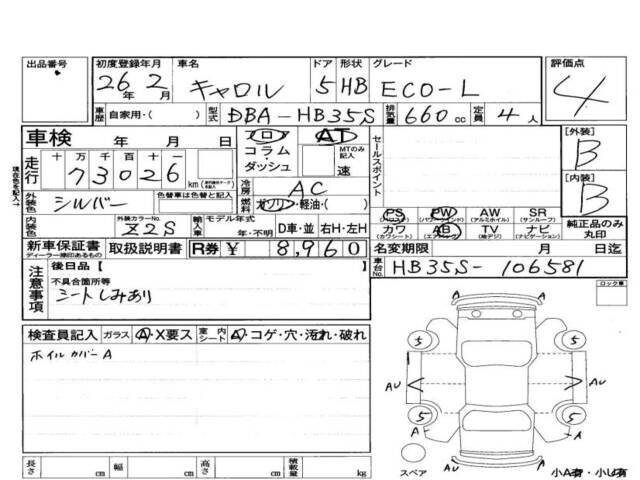 出品番号
初度登録年月 車名 ドア 形状 グレード 評価点
26年 2月 キャロル 5 HB ECO-L 4
車歴 自家用・( ) 型式 DBA-HB35S 排気量 660cc 定員 4人
車検 年 月 日 フロア AT
コラム・ダッシュ MTのみ記入 速
セールスポイント
[外装] B
走行 十万千百十一 73026 km
冷房 AC
[内装] B
外装色 シルバー 色替車は色替と記入 ガソリン・軽油・( )
内装色 外装カラーNo. Z2S 輸入車 モデル年式 年・不明 D車・並 右H・左H
PS PW AW SR
(パワステ) (パワーウィンド) (アルミホイル) (サンルーフ)
カワ AB TV ナビ
(カワシート) (エアバック) (地デジ) (ナビゲーション)
純正品のみ丸印
新車保証書 取扱説明書 R券 ¥ 8,960
ディーラー捺印あるもの
名変期限 月 日迄
車台No. HB35S-106581
現車色を記入→
注意事項
後日品【
不具合箇所等
シートしみあり
ロック車
検査員記入 ガラス A・X要ス 室内シート A・コゲ・穴・汚れ・破れ
ホイルカバーA
A A
5 5
AU AU
5 5
A A
A
スペア
小A有・小U有
長さ cm 幅 cm 高さ cm 積載量 kg